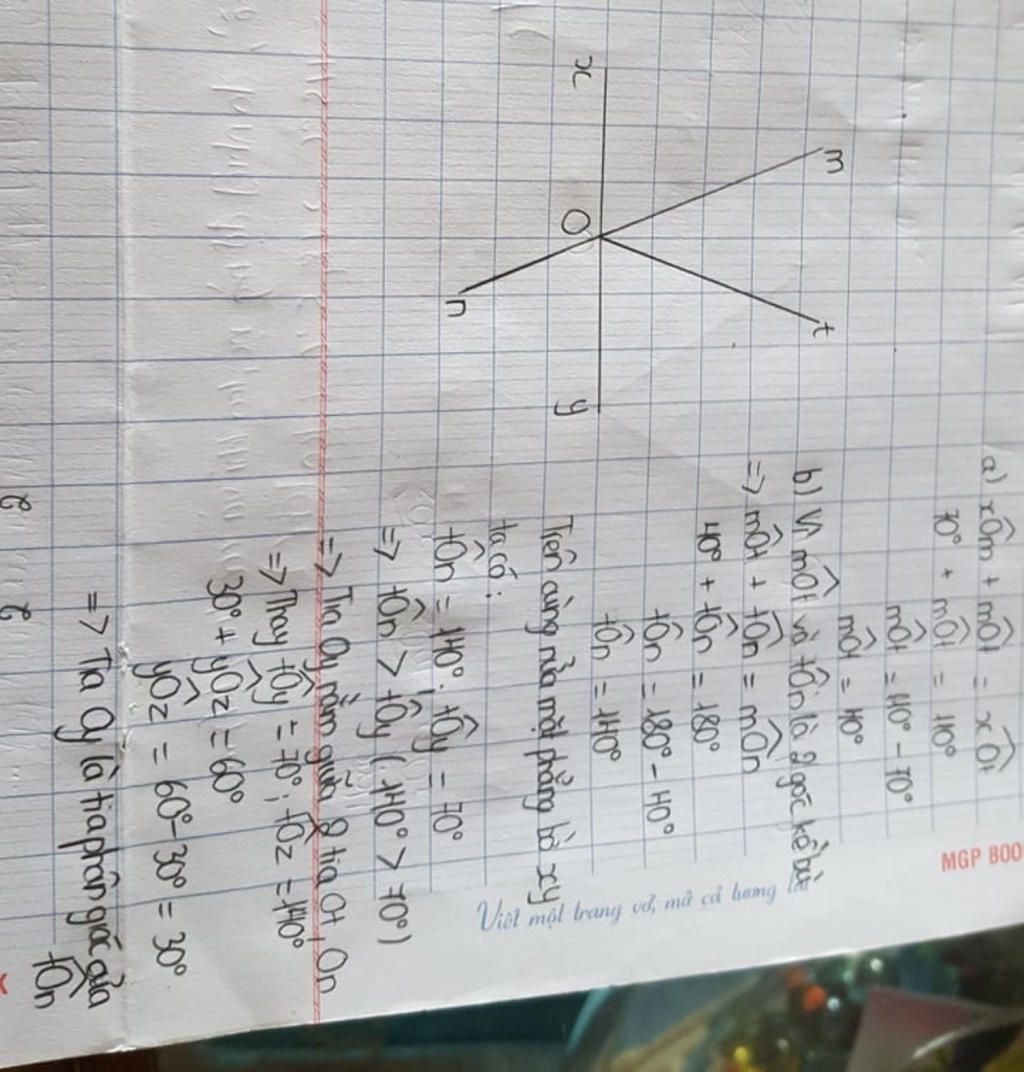 x
m
O
n
t
y
a) xÔm + mÔt = xÔt
70° + mÔt = 110°
mÔt = 110° - 70°
mÔt = 40°
b) Vì mÔt và tÔn là 2 góc kề bù
=> mÔt + tÔn = mÔn
40° + tÔn = 180°
tÔn = 180° - 40°
tÔn = 140°
Trên cùng nửa mặt phẳng bờ xy
ta có:
tÔn = 140°; tÔy = 70°
=> tÔn > tÔy (140° > 70°)
=> Tia Oy nằm giữa 2 tia Ot, On
=> Thay tÔy = 70°; tÔz = 140°
30° + yÔz = 60°
yÔz = 60° - 30° = 30°
=> Tia Oy là tia phân giác của
tÔn
MGP 800
Viết một trang vở, mở cả tương